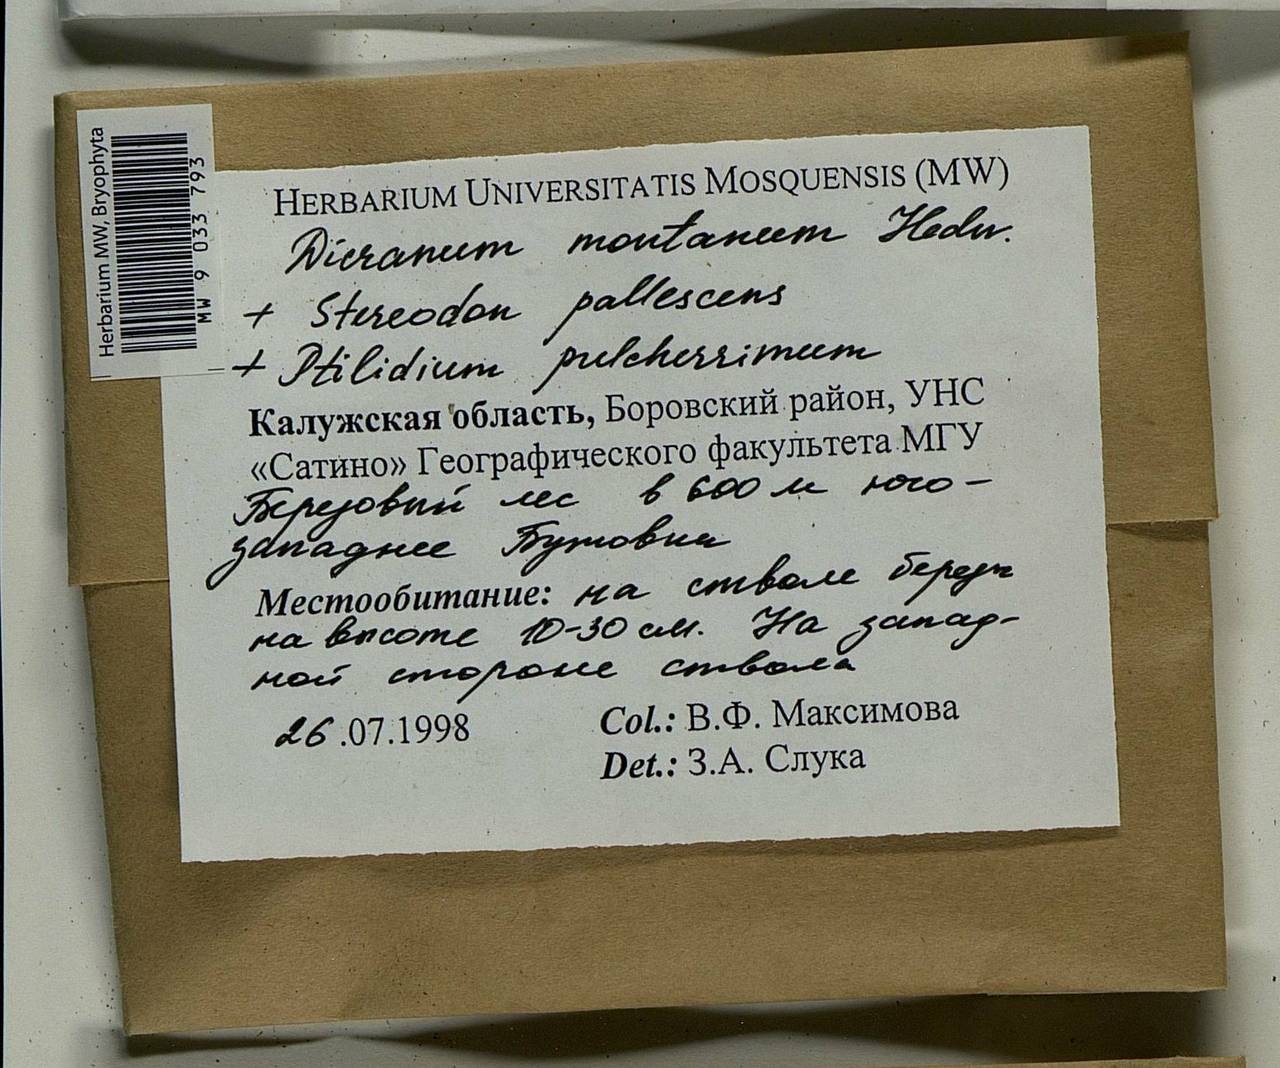 Herbarium MW, Bryophyta
MW 9 033 793
HERBARIUM UNIVERSITATIS MOSQUENSIS (MW)
Dicranum montanum Hedw.
+ Stereodon pallescens
+ Ptilidium pulcherrimum
Калужская область, Боровский район, УНС
«Сатино» Географического факультета МГУ
Березовый лес в 600 м юго-
западнее Бутовки
Местообитание: на стволе березы
на высоте 10-30 см. На запад-
ной стороне ствола
26.07.1998
Col.: В.Ф. Максимова
Det.: З.А. Слука